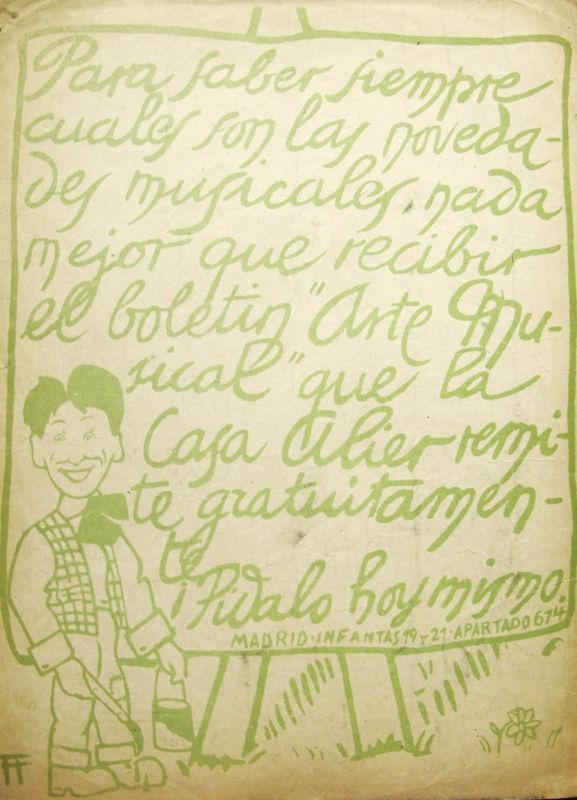 Para saber siempre
cuales son las noveda-
des musicales, nada
mejor que recibir
el boletin "Arte Mu-
sical" que la
Casa Alier remi-
te gratuitamen-
te
¡Pidalo hoy mismo.
MADRID·INFANTAS 19 y 21·APARTADO 674
FF